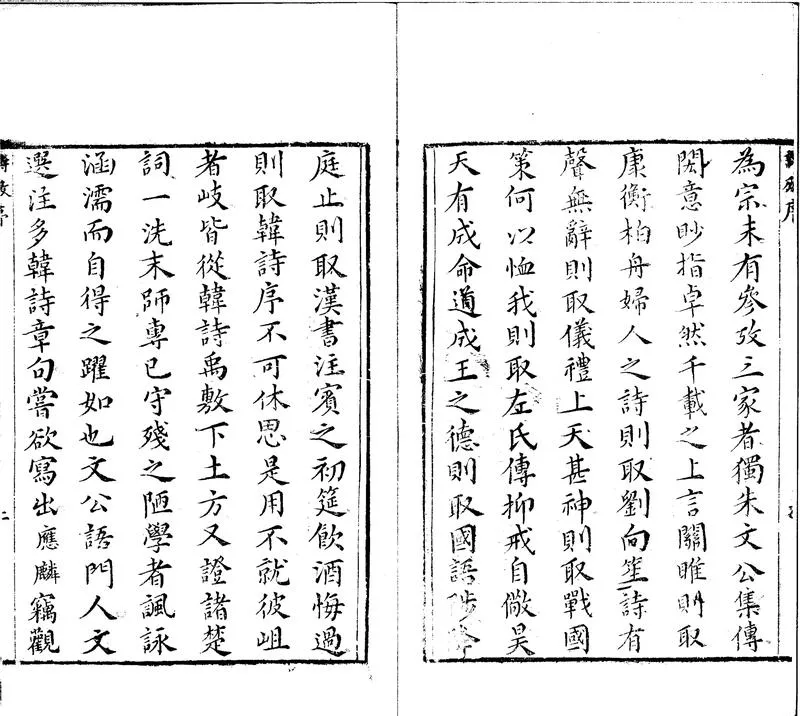 為宗未有參攷三家者獨朱文公集傳
閎意眇指卓然千載之上言關雎則取
康衡柏舟婦人之詩則取劉向笙詩有
聲無辭則取儀禮上天甚神則取戰國
策何以恤我則取左氏傳抑戒自儆昊
天有成命道成王之德則取國語陟降
庭止則取漢書注賓之初筵飲酒悔過
則取韓詩序不可休思是用不就彼岨
者岐皆從韓詩禹敷下土方又證諸楚
詞一洗末師專己守殘之陋學者諷詠
涵濡而自得之躍如也文公語門人文
選注多韓詩章句嘗欲寫出應麟竊觀